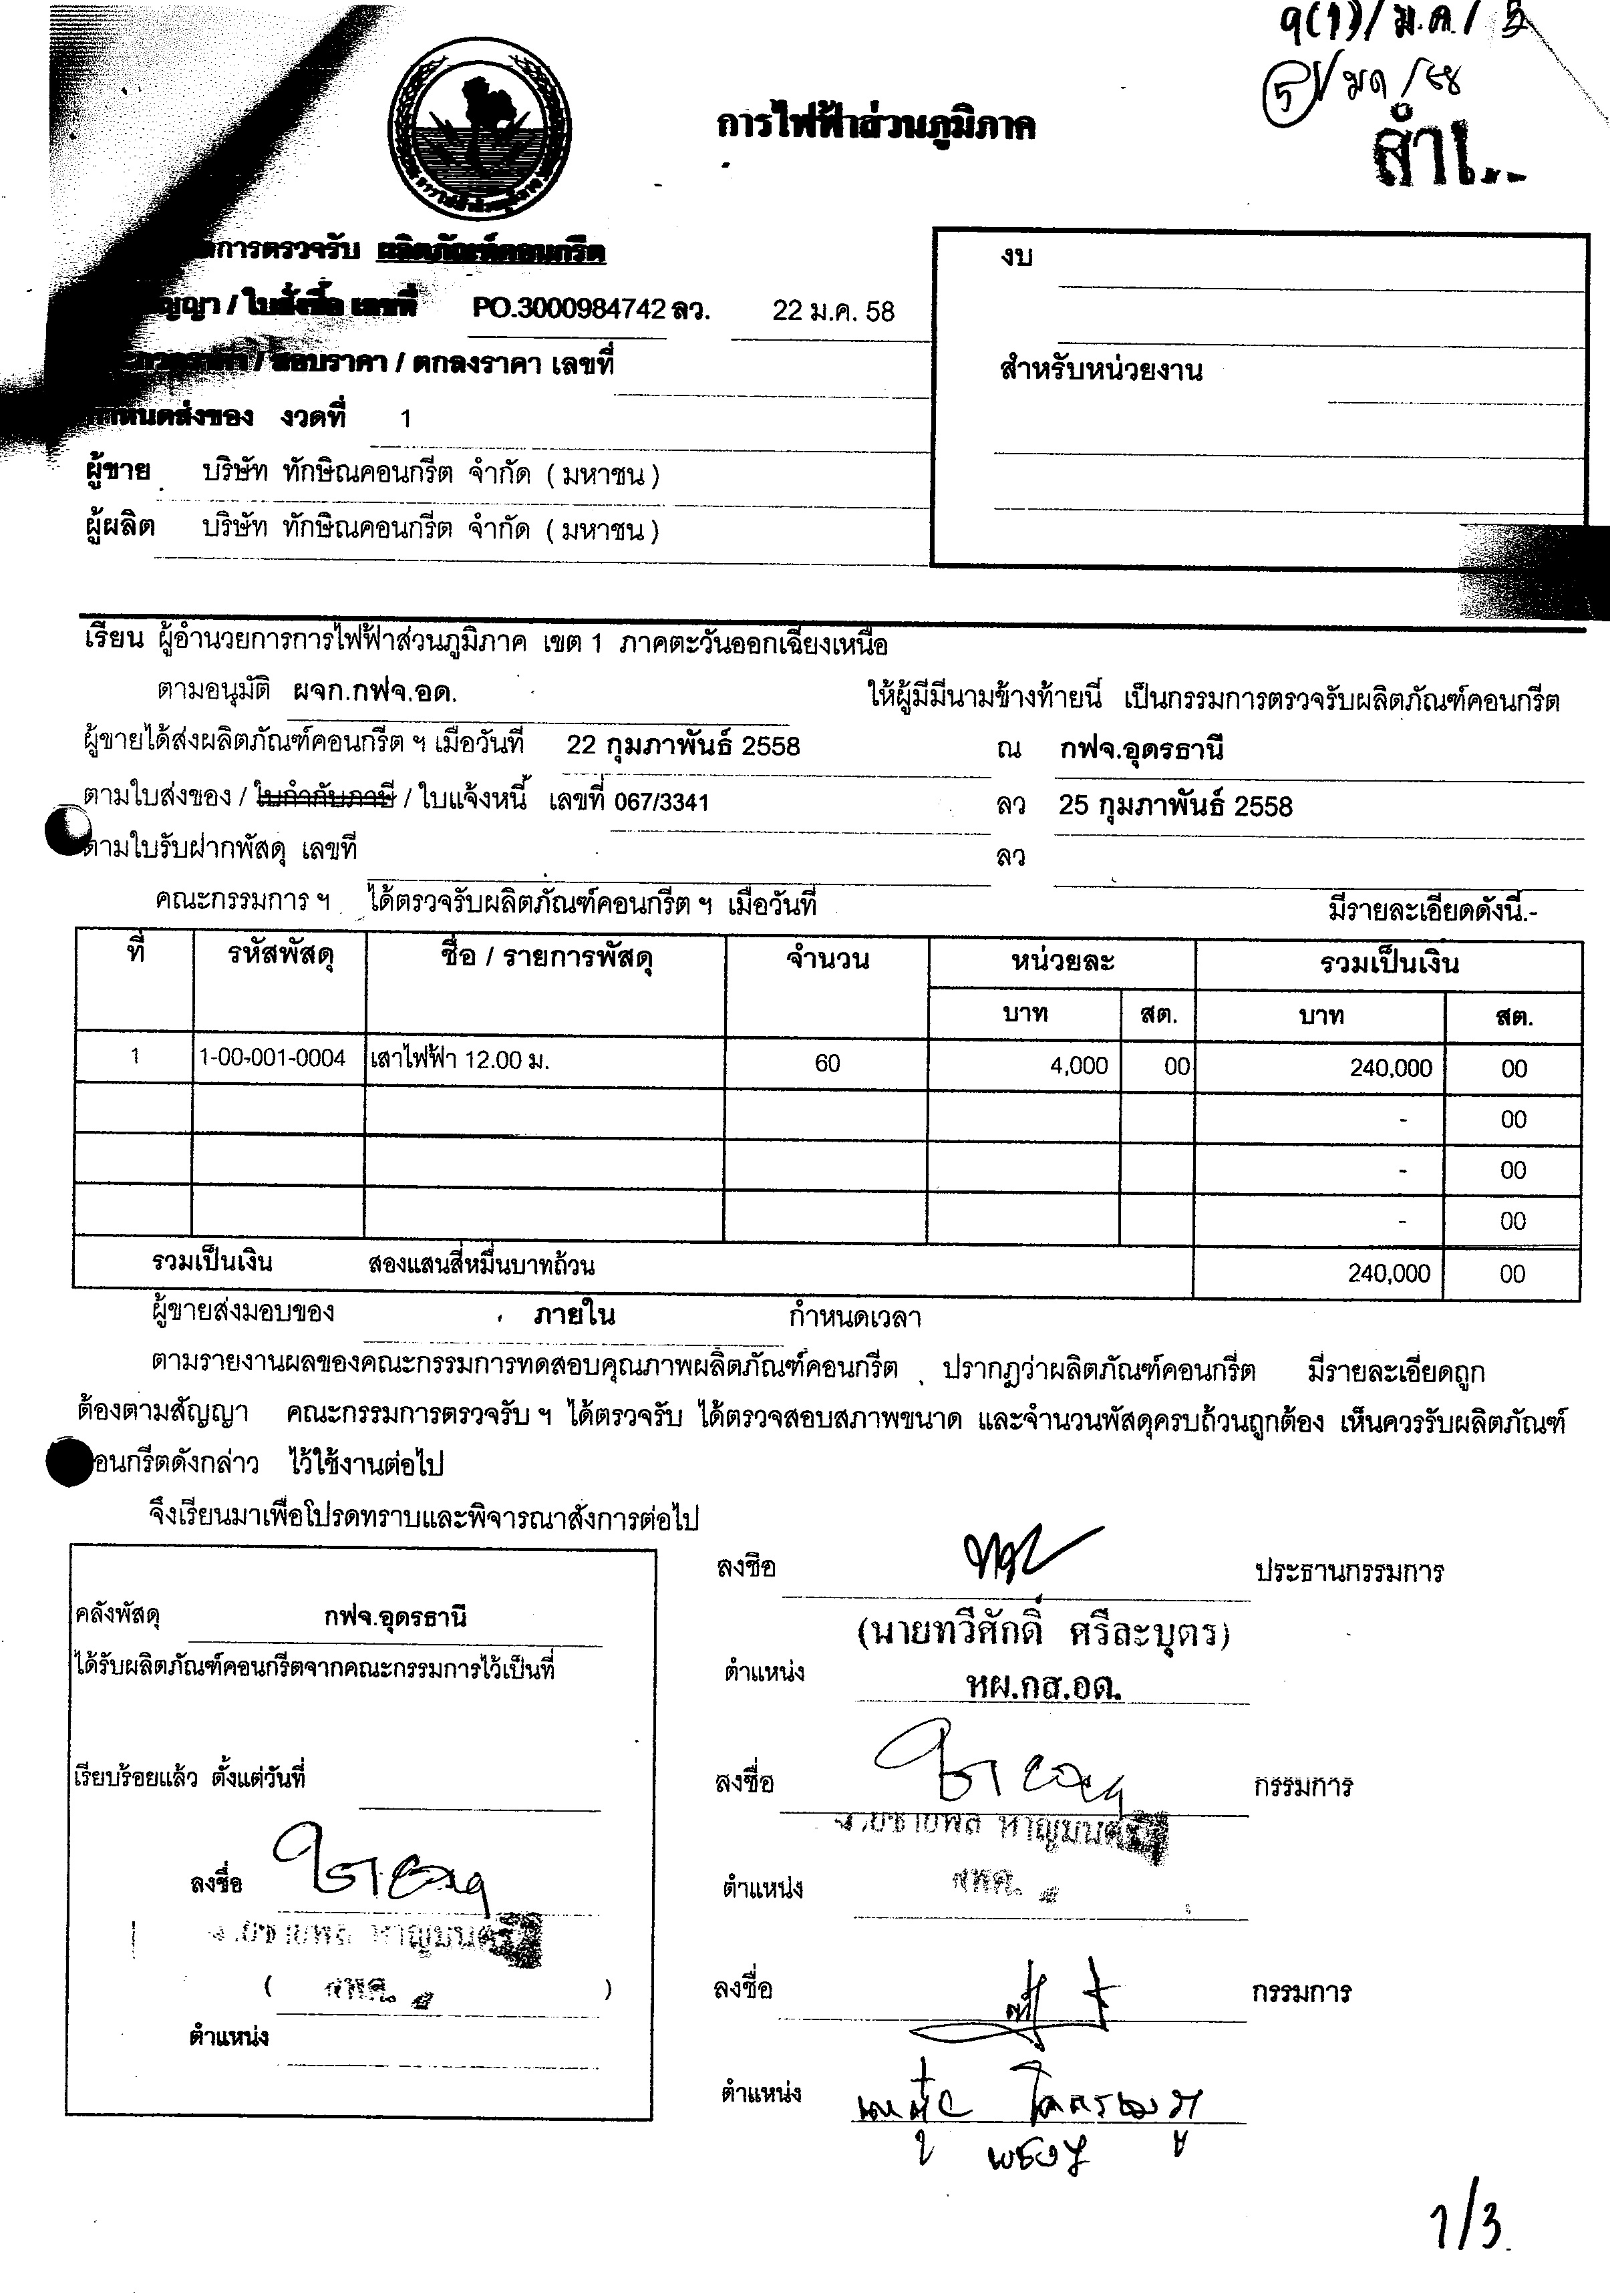 การไฟฟ้าส่วนภูมิภาค
การตรวจรับ ผลิตภัณฑ์คอนกรีต
/ ใบสั่งซื้อ เลขที่ PO.3000984742 ลว. 22 ม.ค. 58
/ สอบราคา / ตกลงราคา เลขที่
กำหนดส่งของ งวดที่ 1
ผู้ขาย บริษัท ทักษิณคอนกรีต จำกัด ( มหาชน )
ผู้ผลิต บริษัท ทักษิณคอนกรีต จำกัด ( มหาชน )
งบ
สำหรับหน่วยงาน
เรียน ผู้อำนวยการการไฟฟ้าส่วนภูมิภาค เขต 1 ภาคตะวันออกเฉียงเหนือ
ตามอนุมัติ ผจก.กฟจ.อด. ให้ผู้มีมีนามข้างท้ายนี้ เป็นกรรมการตรวจรับผลิตภัณฑ์คอนกรีต
ผู้ขายได้ส่งผลิตภัณฑ์คอนกรีต ฯ เมื่อวันที่ 22 กุมภาพันธ์ 2558 ณ กฟจ.อุดรธานี
ตามใบส่งของ / ใบกำกับภาษี / ใบแจ้งหนี้ เลขที่ 067/3341 ลว 25 กุมภาพันธ์ 2558
ตามใบรับฝากพัสดุ เลขที่ ลว
คณะกรรมการ ฯ ได้ตรวจรับผลิตภัณฑ์คอนกรีต ฯ เมื่อวันที่ มีรายละเอียดดังนี้.-
ที่ รหัสพัสดุ ชื่อ / รายการพัสดุ จำนวน หน่วยละ รวมเป็นเงิน
บาท สต. บาท สต.
1 1-00-001-0004 เสาไฟฟ้า 12.00 ม. 60 4,000 00 240,000 00
- 00
- 00
- 00
รวมเป็นเงิน สองแสนสี่หมื่นบาทถ้วน 240,000 00
ผู้ขายส่งมอบของ ภายใน กำหนดเวลา
ตามรายงานผลของคณะกรรมการทดสอบคุณภาพผลิตภัณฑ์คอนกรีต ปรากฏว่าผลิตภัณฑ์คอนกรีต มีรายละเอียดถูก
ต้องตามสัญญา คณะกรรมการตรวจรับ ฯ ได้ตรวจรับ ได้ตรวจสอบสภาพขนาด และจำนวนพัสดุครบถ้วนถูกต้อง เห็นควรรับผลิตภัณฑ์
คอนกรีตดังกล่าว ไว้ใช้งานต่อไป
จึงเรียนมาเพื่อโปรดทราบและพิจารณาสั่งการต่อไป
คลังพัสดุ กฟจ.อุดรธานี
ได้รับผลิตภัณฑ์คอนกรีตจากคณะกรรมการไว้เป็นที่
เรียบร้อยแล้ว ตั้งแต่วันที่
ลงชื่อ
( )
ตำแหน่ง
ลงชื่อ ประธานกรรมการ
(นายทวีศักดิ์ ศรีละบุตร)
ตำแหน่ง หผ.กส.อด.
ลงชื่อ กรรมการ
ตำแหน่ง
ลงชื่อ กรรมการ
ตำแหน่ง
1/3